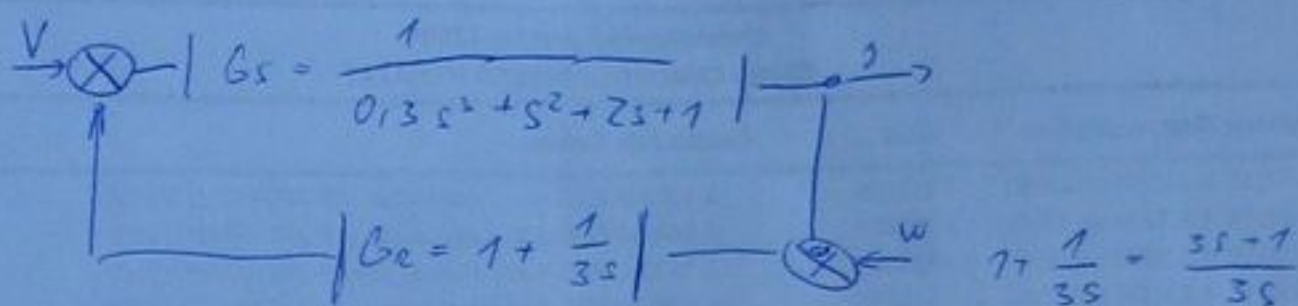 V
Gs = 1 / 0,3 s³ + s² + 2s + 1
y
GR = 1 + 1 / 3s
w
1 + 1 / 3s = 3s + 1 / 3s